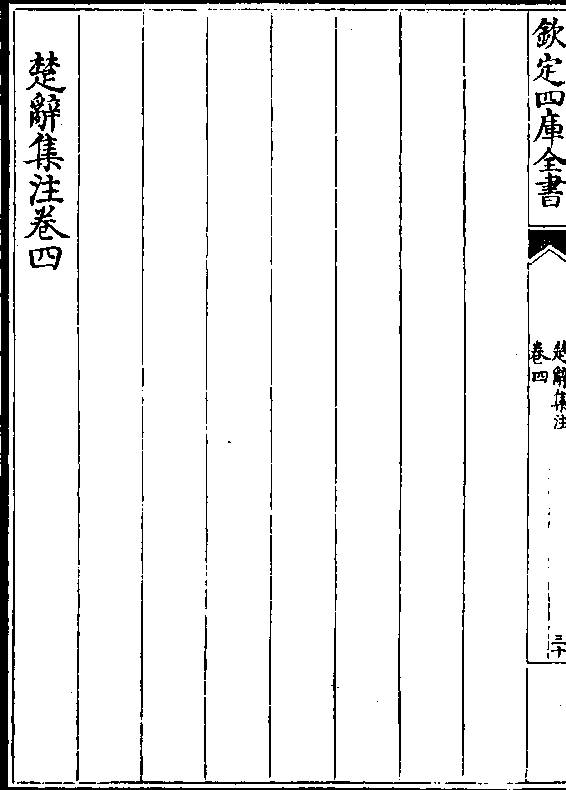 欽定四庫全書
楚辭集注
卷四
三十
楚辭集注卷四